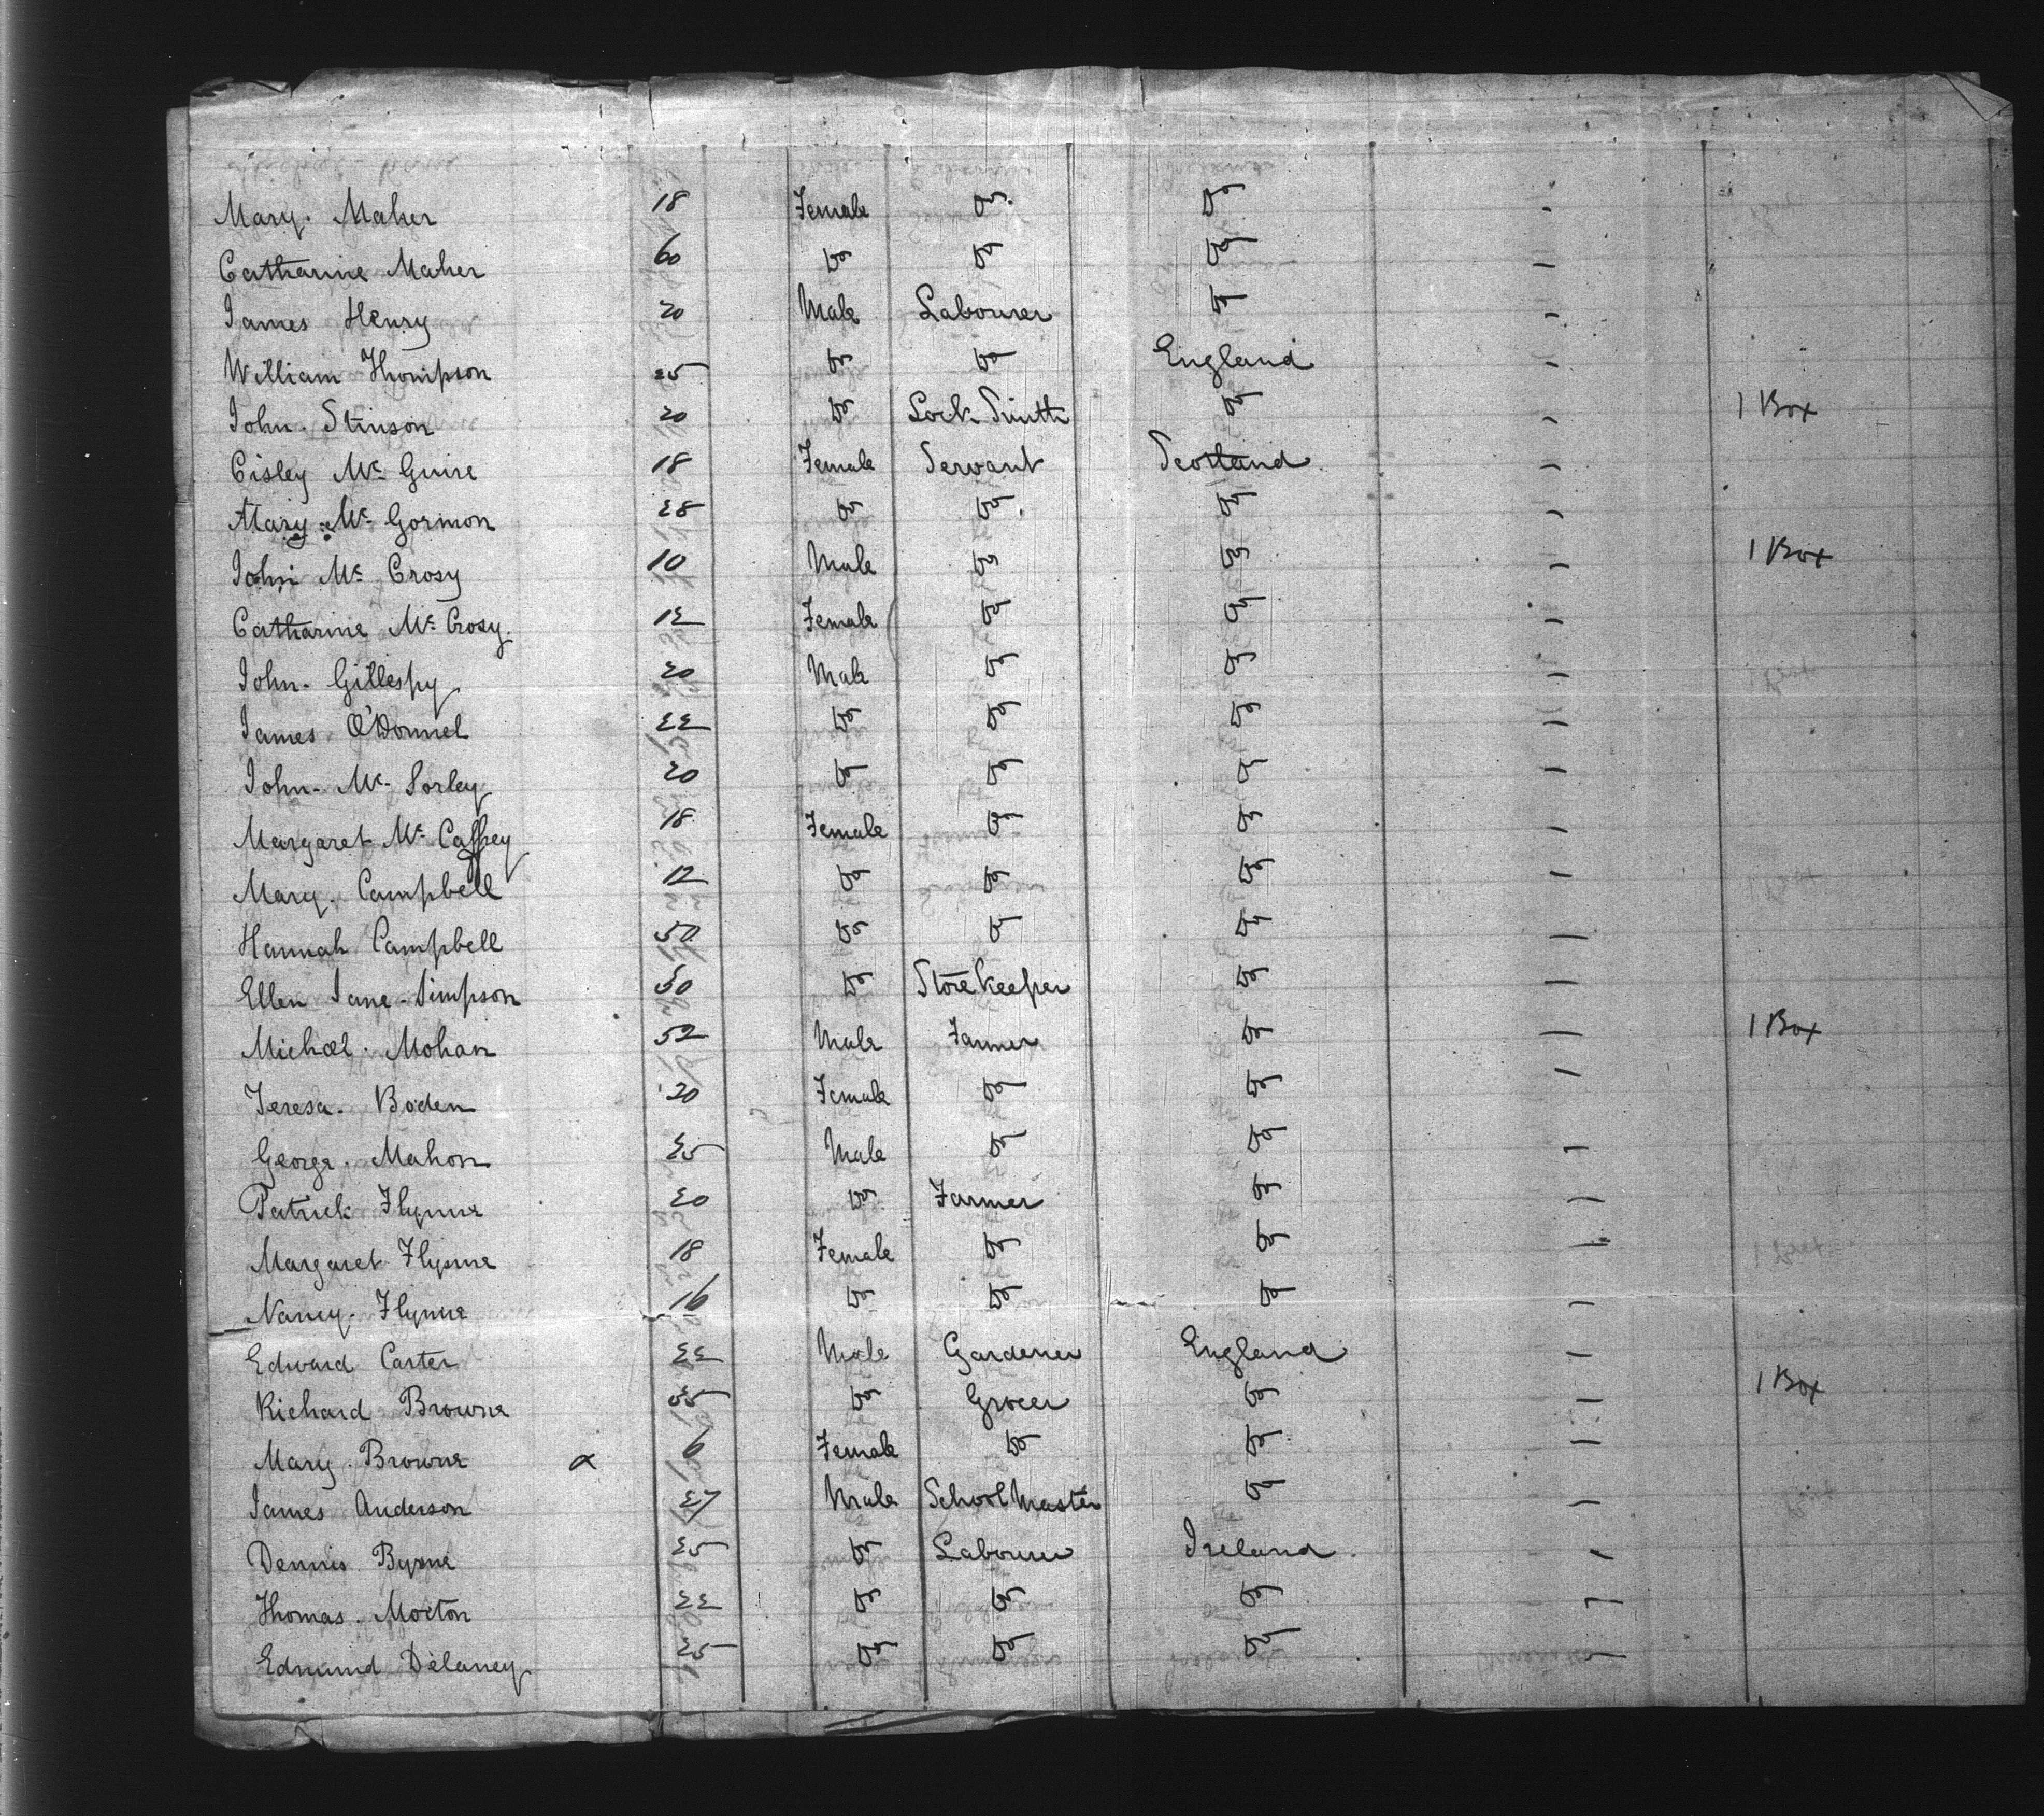 Mary. Maher 18 Female Do. Do
Catharine Maher 60 Do Do Do -
James Henry 20 Male Labourer Do -
William Thompson 25 Do Do England -
John. Stinson 20 Do Lock Smith Do - 1 Box
Cisley Mc Guire 18 Female Servant Scotland -
Mary Mc Gormon 28 Do Do. Do -
John Mc Crosy 10 Male Do Do - 1 Box
Catharine Mc Crosy. 12 Female Do Do -
John. Gillespy 20 Male Do Do -
James O'Donnel 22 Do Do Do -
John. Mc Sorley 20 Do Do Do -
Margaret Mc Caffrey 18 Female Do Do -
Mary. Campbell 12 Do Do Do -
Hannah Campbell 50 Do Do Do -
Ellen Jane Simpson 30 Do Store Keeper Do -
Michael. Mohan 52 Male Farmer Do - 1 Box
Teresa. Boden 20 Female Do Do -
George. Mahon 25 Male Do Do -
Patrick Flynne 20 Do Farmer Do -
Margaret Flynne 18 Female Do Do -
Nancy. Flynne 16 Do Do Do -
Edward Carter 22 Male Gardener England -
Richard Browne 35 Do Grocer Do - 1 Box
Mary. Browne 6 Female Do Do -
James Anderson 27 Male School Master Do -
Dennis Byrne 25 Do Labourer Ireland. -
Thomas. Morton 22 Do Do Do -
Edmund Delaney 25 Do Do Do -